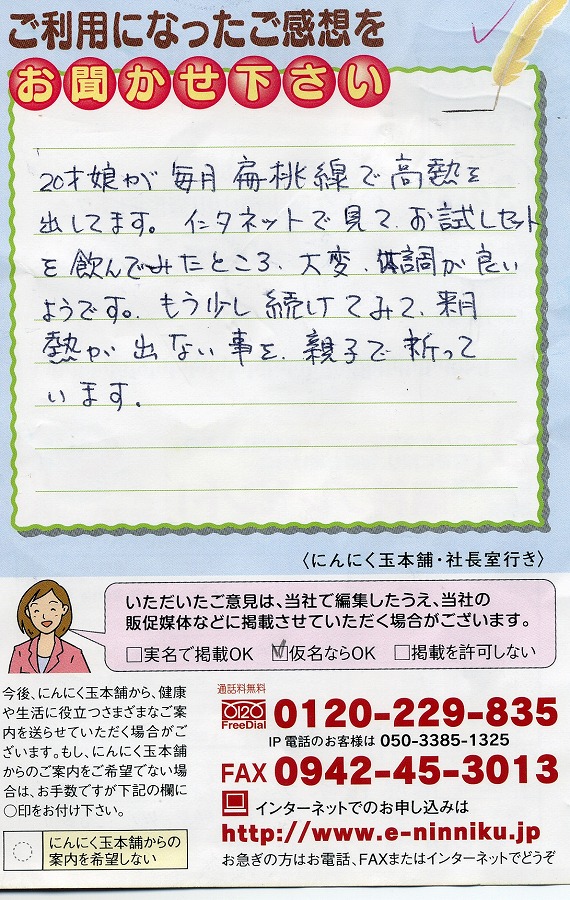 ご利用になったご感想を
お聞かせ下さい
20才娘が 毎月 扁桃線で高熱を
出してます。 インタネットで見て、お試しセット
を飲んでみたところ、大変、体調が良い
ようです。もう少し続けてみて、来月
熱が出ない事を、親子で祈って
います。
〈にんにく玉本舗・社長室行き〉
いただいたご意見は、当社で編集したうえ、当社の
販促媒体などに掲載させていただく場合がございます。
□実名で掲載OK ☑仮名ならOK □掲載を許可しない
今後、にんにく玉本舗から、健康
や生活に役立つさまざまなご案
内を送らせていただく場合がご
ざいます。もし、にんにく玉本舗
からのご案内をご希望でない場
合は、お手数ですが下記の欄に
○印をお付け下さい。
にんにく玉本舗からの
案内を希望しない
通話料無料
0120 FreeDial 0120-229-835
IP電話のお客様は 050-3385-1325
FAX 0942-45-3013
インターネットでのお申し込みは
http://www.e-ninniku.jp
お急ぎの方はお電話、FAXまたはインターネットでどうぞ